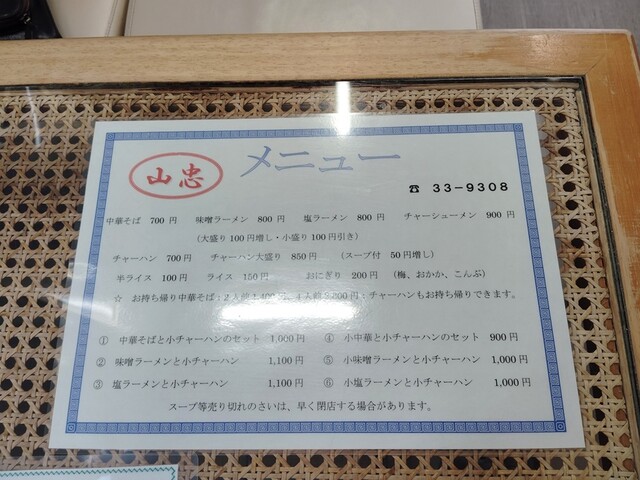 山忠
メニュー
☎ 33-9308
中華そば 700 円 味噌ラーメン 800 円 塩ラーメン 800 円 チャーシューメン 900 円
(大盛り 100 円増し・小盛り 100 円引き)
チャーハン 700 円 チャーハン大盛り 850 円 (スープ付 50 円増し)
半ライス 100 円 ライス 150 円 おにぎり 200 円 (梅、おかか、こんぶ)
☆ お持ち帰り中華そば:2人前 1,400 円、4人前 円:チャーハンもお持ち帰りできます。
① 中華そばと小チャーハンのセット 1,000 円 ④ 小中華と小チャーハンのセット 900 円
② 味噌ラーメンと小チャーハン 1,100 円 ⑤ 小味噌ラーメンと小チャーハン 1,000 円
③ 塩ラーメンと小チャーハン 1,100 円 ⑥ 小塩ラーメンと小チャーハン 1,000 円
スープ等売り切れのさいは、早く閉店する場合があります。